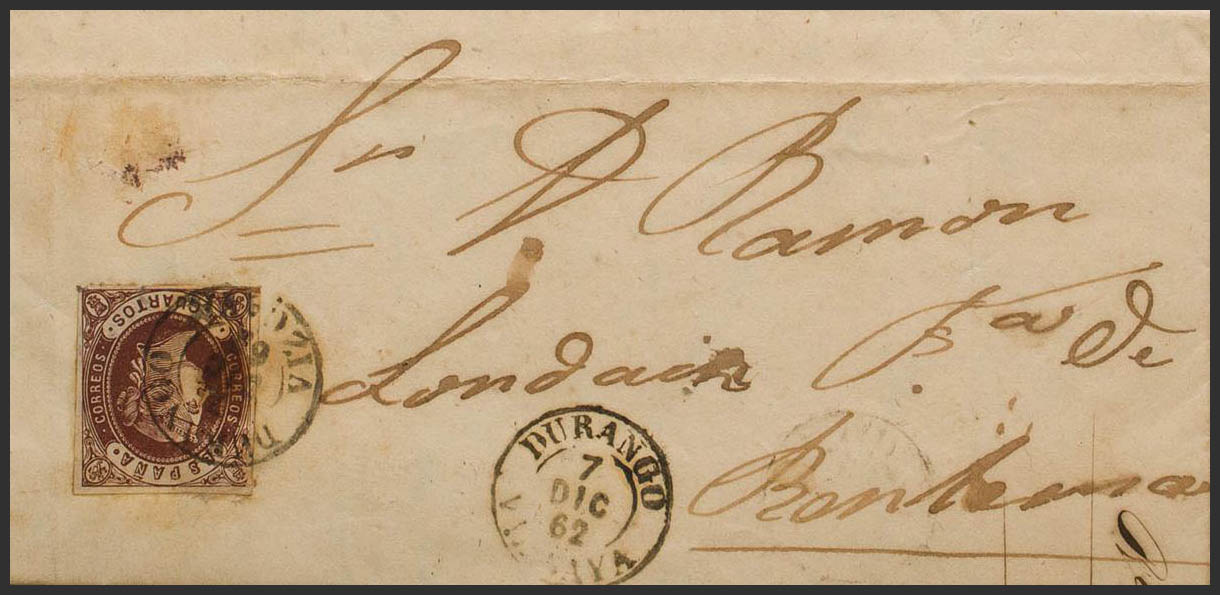 Sr D Ramon
Londaiz Fa de
Renteria
CUARTOS
CORREOS
CORREOS
ESPAÑA
DURANGO
7
DIC
62
VIZCAYA